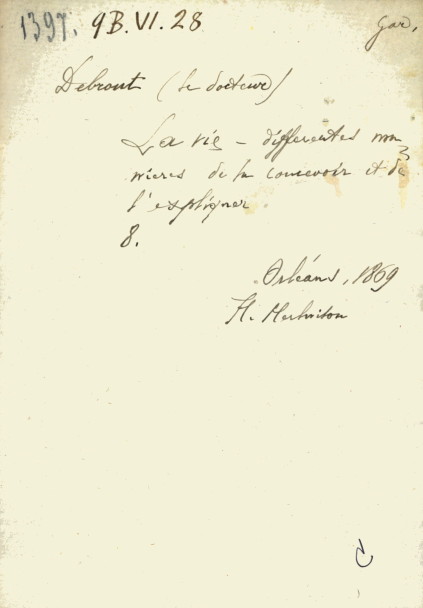 1397. 9B.VI.28 Gar.
Debrout (le docteur)
La vie - différentes ma
nieres de la concevoir et de
l'expliquer
8.
Orléans, 1869
H. Herluison
C